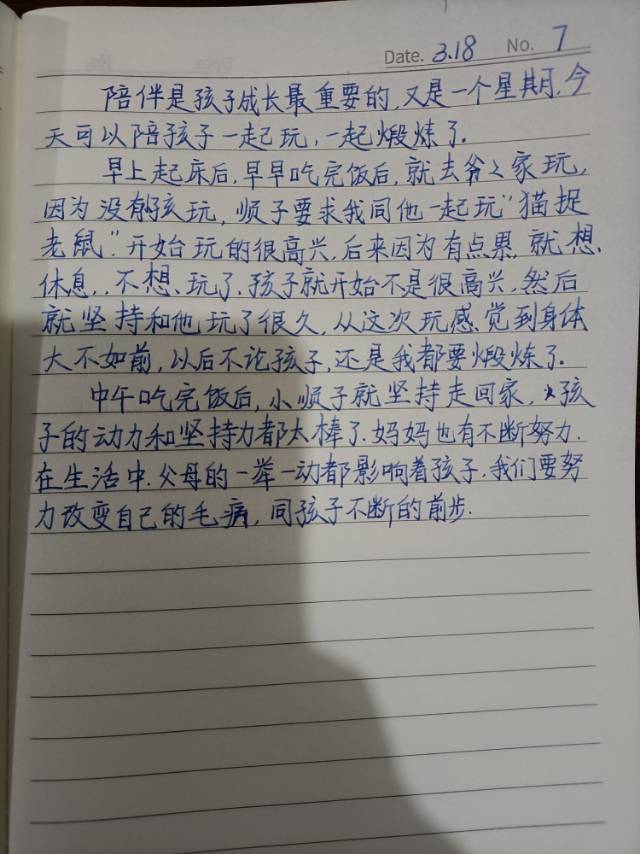 Date. 3.18 No. 7
陪伴是孩子成长最重要的,又是一个星期,今
天可以陪孩子一起玩,一起煅炼了.
早上起床后,早早吃完饭后,就去爷爷家玩,
因为没有孩玩,顺子要求我同他一起玩“猫捉
老鼠”.开始玩的很高兴,后来因为有点累,就想
休息,不想玩了.孩子就开始不是很高兴,然后
就坚持和他玩了很久,从这次玩感觉到身体
大不如前,以后不论孩子,还是我都要煅炼了.
中午吃完饭后,小顺子就坚持走回家,孩
子的动力和坚持力都太棒了.妈妈也有不断努力.
在生活中.父母的一举一动都影响着孩子.我们要努
力改变自己的毛病,同孩子不断的前步.